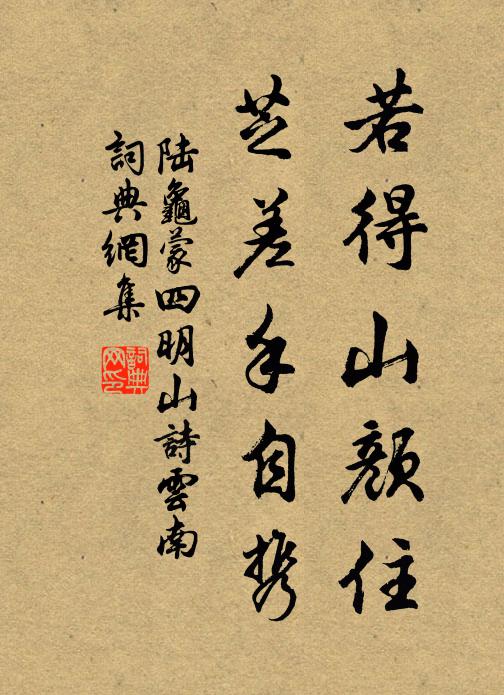 若得山顏住
芝差手自携
陸龜蒙四明山詩雲南
詞典網集
詞典网印